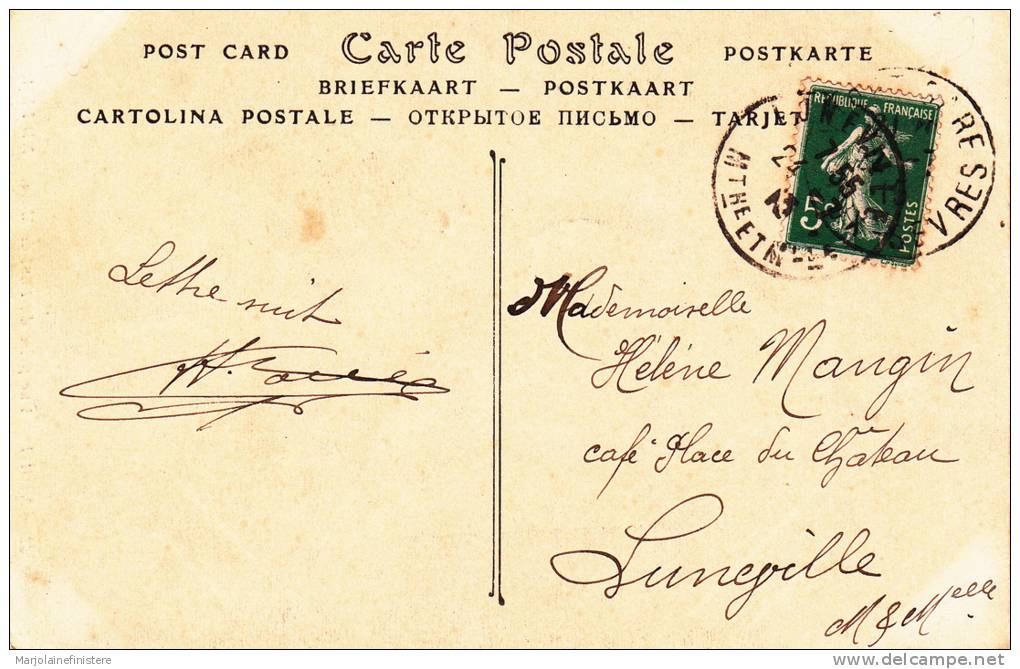 POST CARD Carte Postale POSTKARTE
BRIEFKAART — POSTKAART
CARTOLINA POSTALE — ОТКРЫТОЕ ПИСЬМО — TARJET
REPUBLIQUE FRANÇAISE
5c
POSTES
LUNEVILLE
7 55
MTHE ET M
VRES
Lettre suit
Mademoiselle
Hélène Mangin
café Place du Château
Lunéville
M & Melle
Marjolainefinistere
delcampe.net